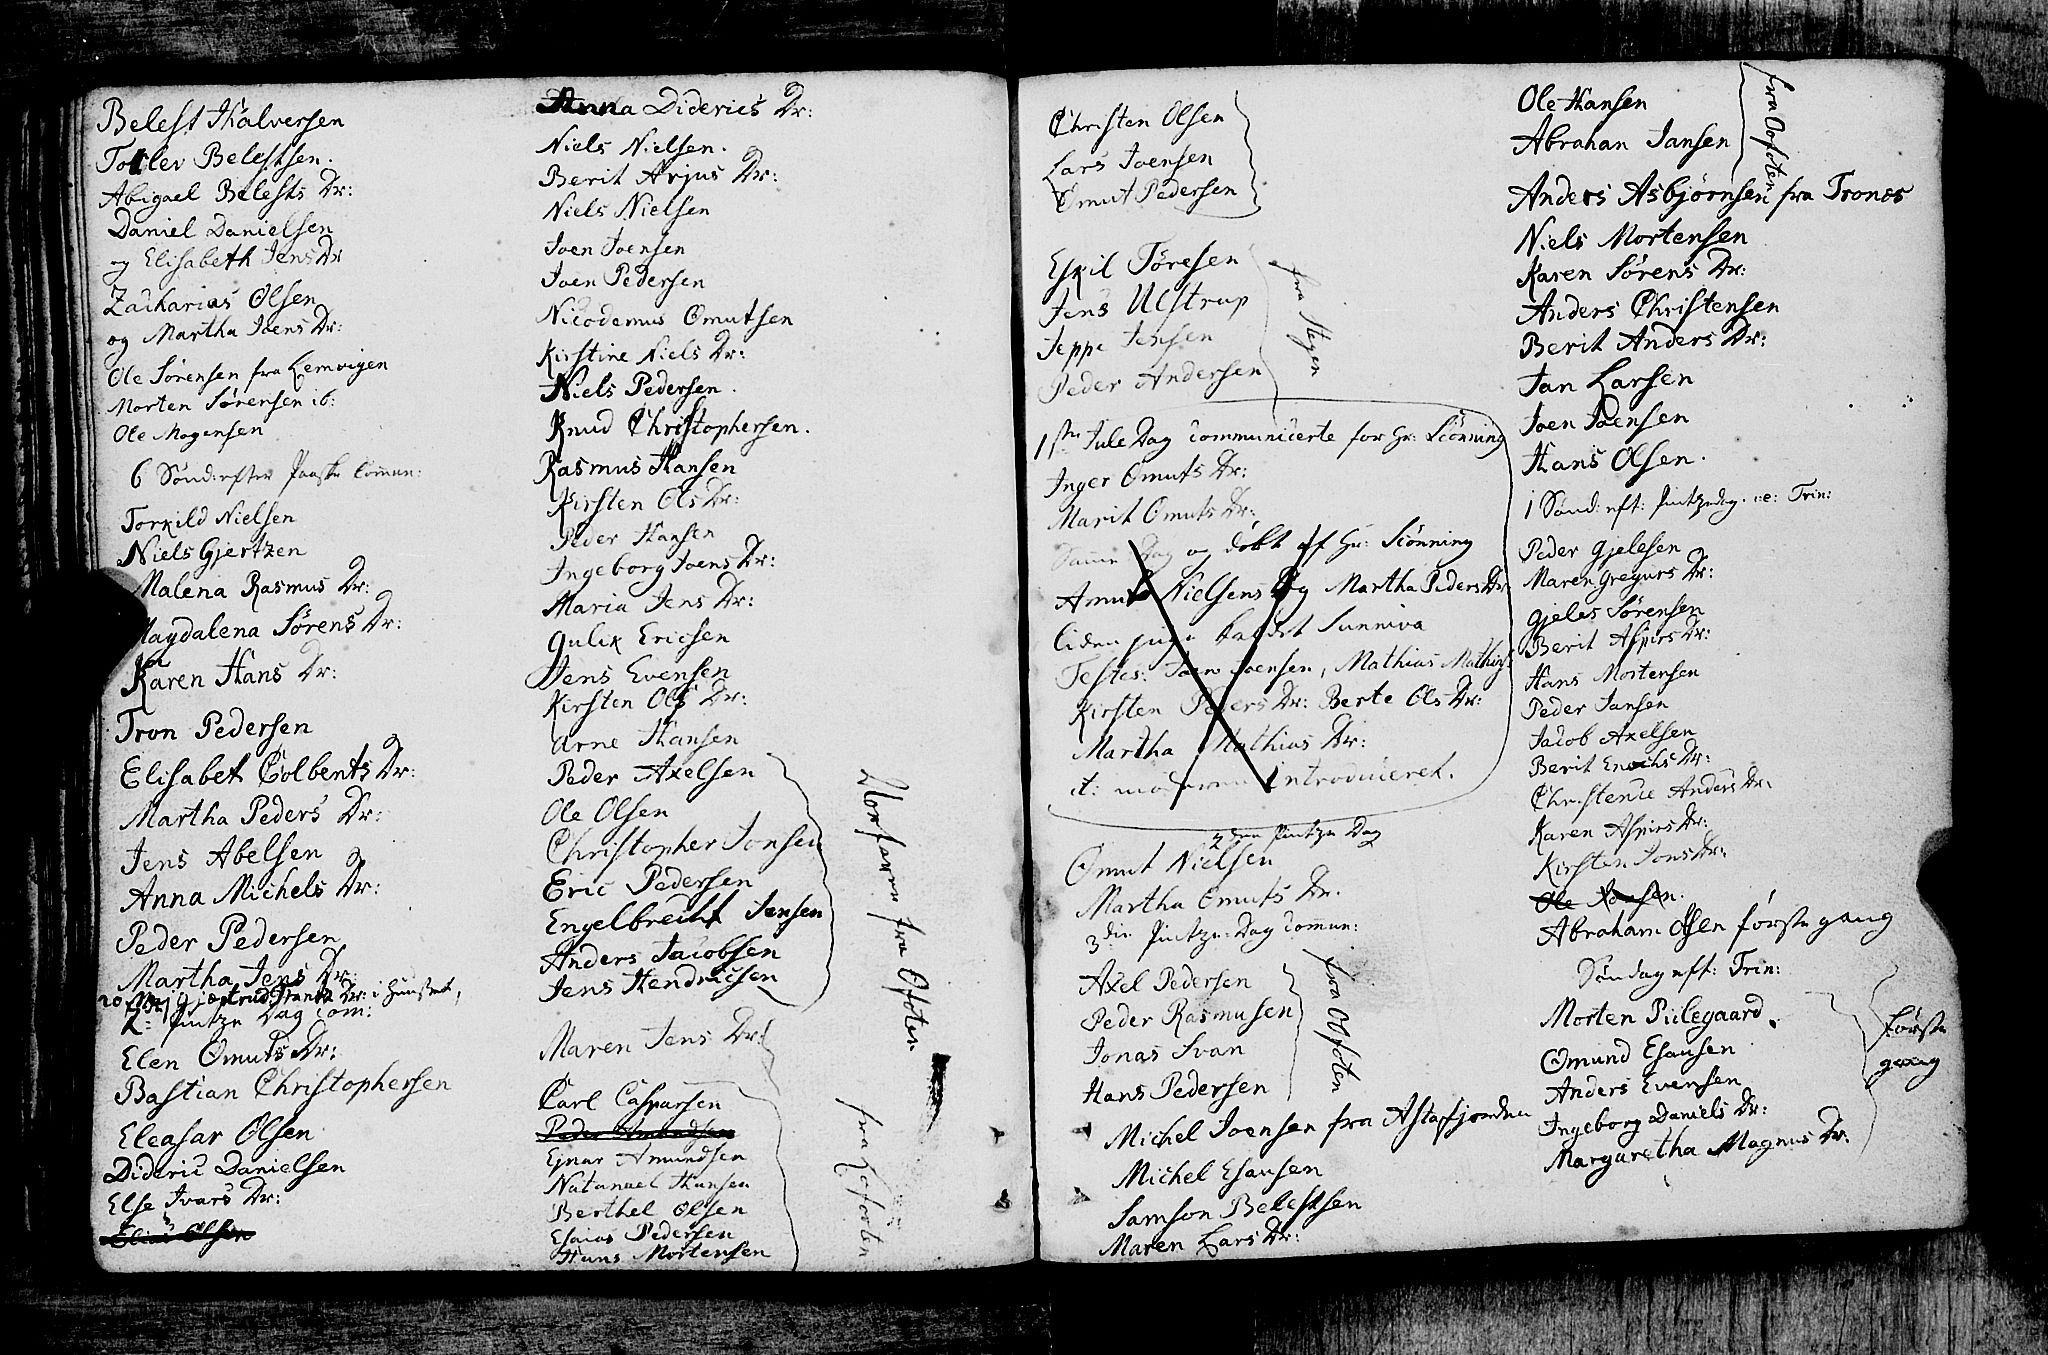 Belest Halversen
Tollev Belestsen.
Abigael Belests Dr:
Daniel Danielsen
og Elisabeth Jens Dr
Zacharias Olsen
og Martha Joens Dr:
Ole Sørensen fra Lemvigen
Morten Sørensen ib:
Ole Mogensen
6 Sønd: efter Paaske Commun:
Torkild Nielsen
Niels Gjertzen
Malena Rasmus Dr:
Magdalena Sørens Dr:
Karen Hans Dr:
Tron Pedersen
Elisabet Colbents Dr:
Martha Peders Dr:
Jens Abelsen
Anna Michels Dr:
Peder Pedersen
Martha Jens Dr:
20 Maj Gjertrud Frants Dr: i Huuset,
2: Pintze Dag Com:
Elen Omuts Dr:
Bastian Christophersen
Eleasar Olsen
Dideric Danielsen
Else Ivars Dr:
Elias Olsen
Anna Diderics Dr:
Niels Nielsen.
Berit Arjus Dr:
Niels Nielsen
Joen Joensen
Joen Pedersen
Nicodemus Omutsen
Kirstine Niels Dr:
Niels Pedersen.
Knud Christophersen.
Rasmus Hansen
Kirsten Ols Dr:
Peder Hansen
Ingeborg Joens Dr:
Maria Jens Dr:
Gulik Ericsen
Jens Evensen
Kirsten Ols Dr:
Arne Hansen
Peder Axelsen
Ole Olsen
Christopher Jonsen
Eric Pedersen
Engelbrecht Jensen
Anders Jacobsen
Jens Hendricsen
Norfarere fra Ofoten
Maren Jens Dr:
Carl Casparsen
Peder Amundsen
Ejnar Amundsen
Natanael Hansen
Berthel Olsen
Esaias Pedersen
Hans Mortensen
fra Lofoten
Christen Olsen
Lars Joensen
Omut Pedersen
Eskil Tøresen
Jens Ulstrup
Jeppe Jensen
Peder Andersen
fra Stegen
1ste Jule Dag communicerte for Hr: Scønning
Inger Omuts Dr:
Marit Omuts Dr:
Samme Dag og døbt af Hr: Scønning
Amut Nielsens og Martha Peders Dr
liden pige kaldet Sunniva
Testes: Joen Joensen, Mathias Mathies:
Kirsten Peders Dr: Berte Ols Dr:
Martha Mathias Dr:
it: moderen introduceret.
2den Pintze Dag
Omut Nielsen
Martha Omuts Dr.
3die Pintze Dag Commun:
Axel Pedersen
Peder Rasmusen
Jonas Svan
Hans Pedersen
fra Ofoten
Michel Joensen fra Astafjorden
Michel Esausen
Samson Belestsen
Maren Lars Dr:
Ole Hansen
Abraham Jansen
fra Ofoten
Anders Asbjørnsen fra Trones
Niels Mortensen
Karen Sørens Dr:
Anders Christensen
Berit Anders Dr:
Jan Larsen
Joen Joensen
Hans Olsen.
1 Sønd: eft: Pintzedag. ɔe: Trin:
Peder Gjelesen
Maren Gregurs Dr:
Gjeles Sørensen
Berit Aspirs Dr:
Hans Mortensen
Peder Jansen
Jacob Axelsen
Berit Enochs Dr:
Christence Anders Dr:
Karen Aspirs Dr:
Kirsten Jons Dr:
Ole Hansen.
Abraham Olsen første gang
Søndag eft: Trin:
Morten Pilegaard.
Omund Esausen
Anders Evensen
Ingeborg Daniels Dr:
Margaretha Magnus Dr:
første
gang